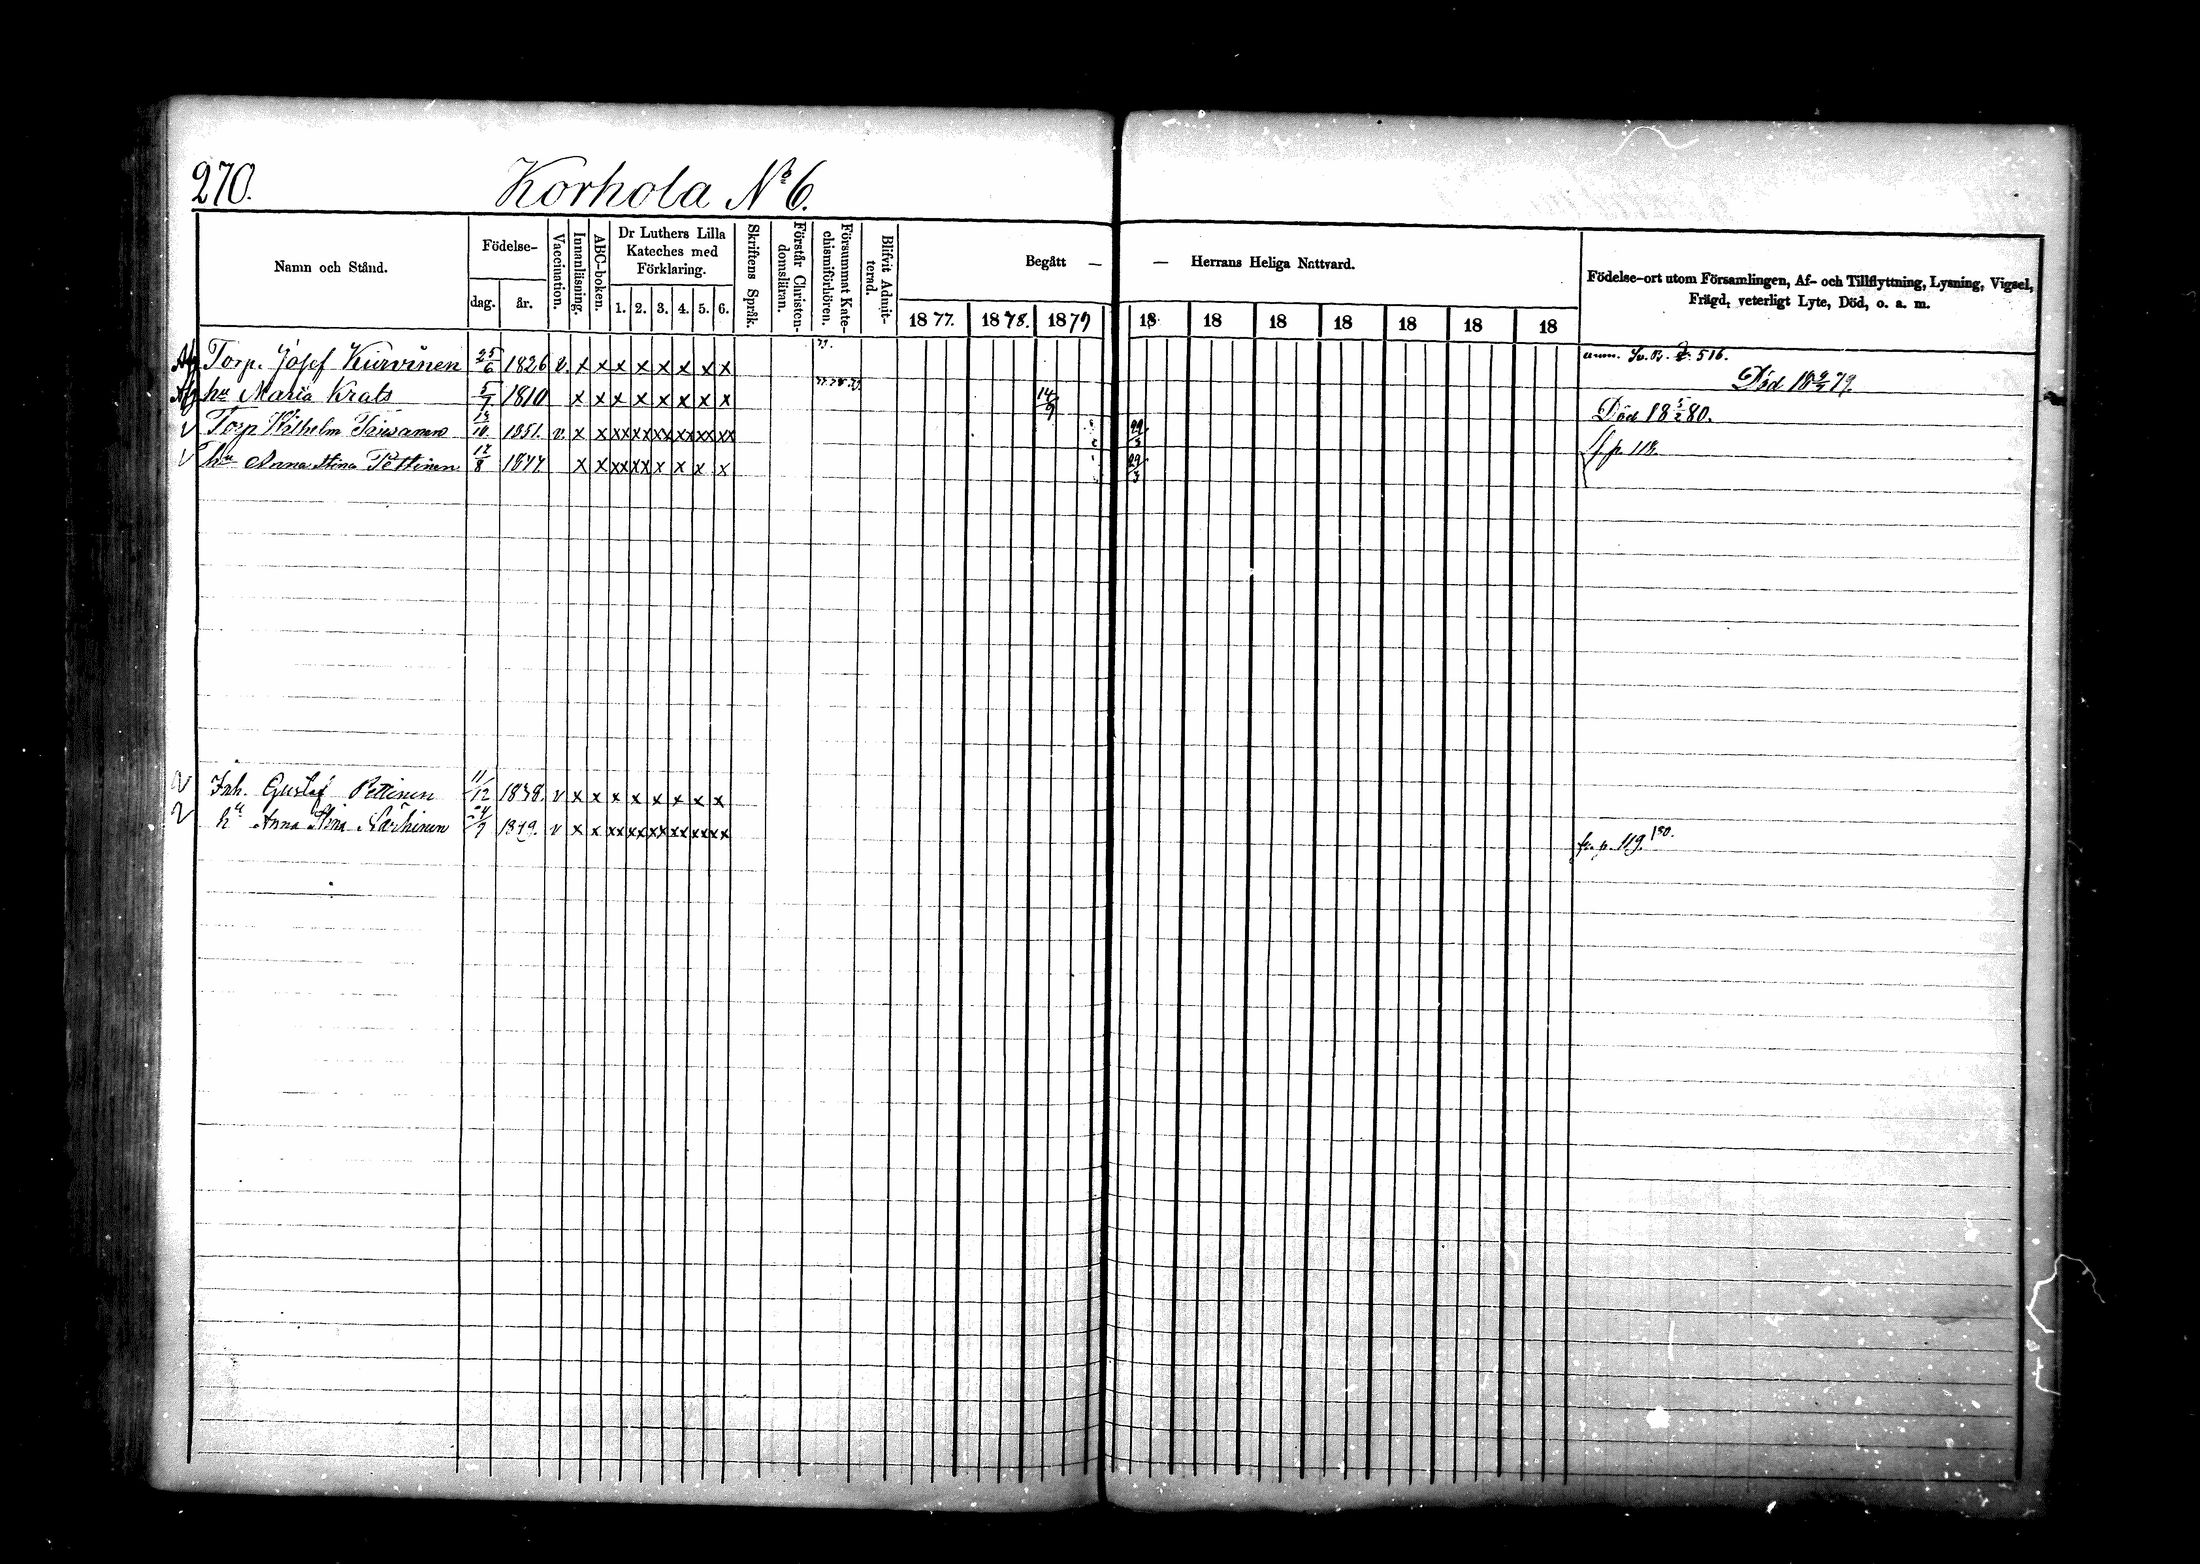 270.
Korhola No 6.
Namn och Stånd.
Födelse-
dag.
år.
Vaccination.
Innanläsning.
ABC-boken.
Dr Luthers Lilla
Kateches med
Förklaring.
1. 2. 3. 4. 5. 6.
Skriftens Språk.
Förstår Christen-
domsläran.
Försummat Kate-
chismiförhören.
Blifvit Admit-
terad.
Begått — — Herrans Heliga Nattvard.
1877. 1878. 1879 18 18 18 18 18 18 18
Födelse-ort utom Församlingen, Af- och Tillflyttning, Lysning, Vigsel,
Frägd, veterligt Lyte, Död, o. a. m.
Torp. Josef Kurvinen 25/6 1826 v. x x x x x x x x
anm. Sv. B. 516.
Död 18 79.
hu Maria Krats 5/7 1810 x x x x x x x x 14/9
Död 18 5/2 80.
Torp Wilhelm 10 1851. v. x x xx xx xx xx xx xx 29/3
hu Anna Stina Pettinen 12/8 18 x x xx xx x x x x 29/3
f. p. 118.
Inh. Gustaf Pettinen 11/12 1838. v x x x x x x x x
hu Anna Stina 9 1849. v x x xx xx xx xx xx xx
fr. p. 119.